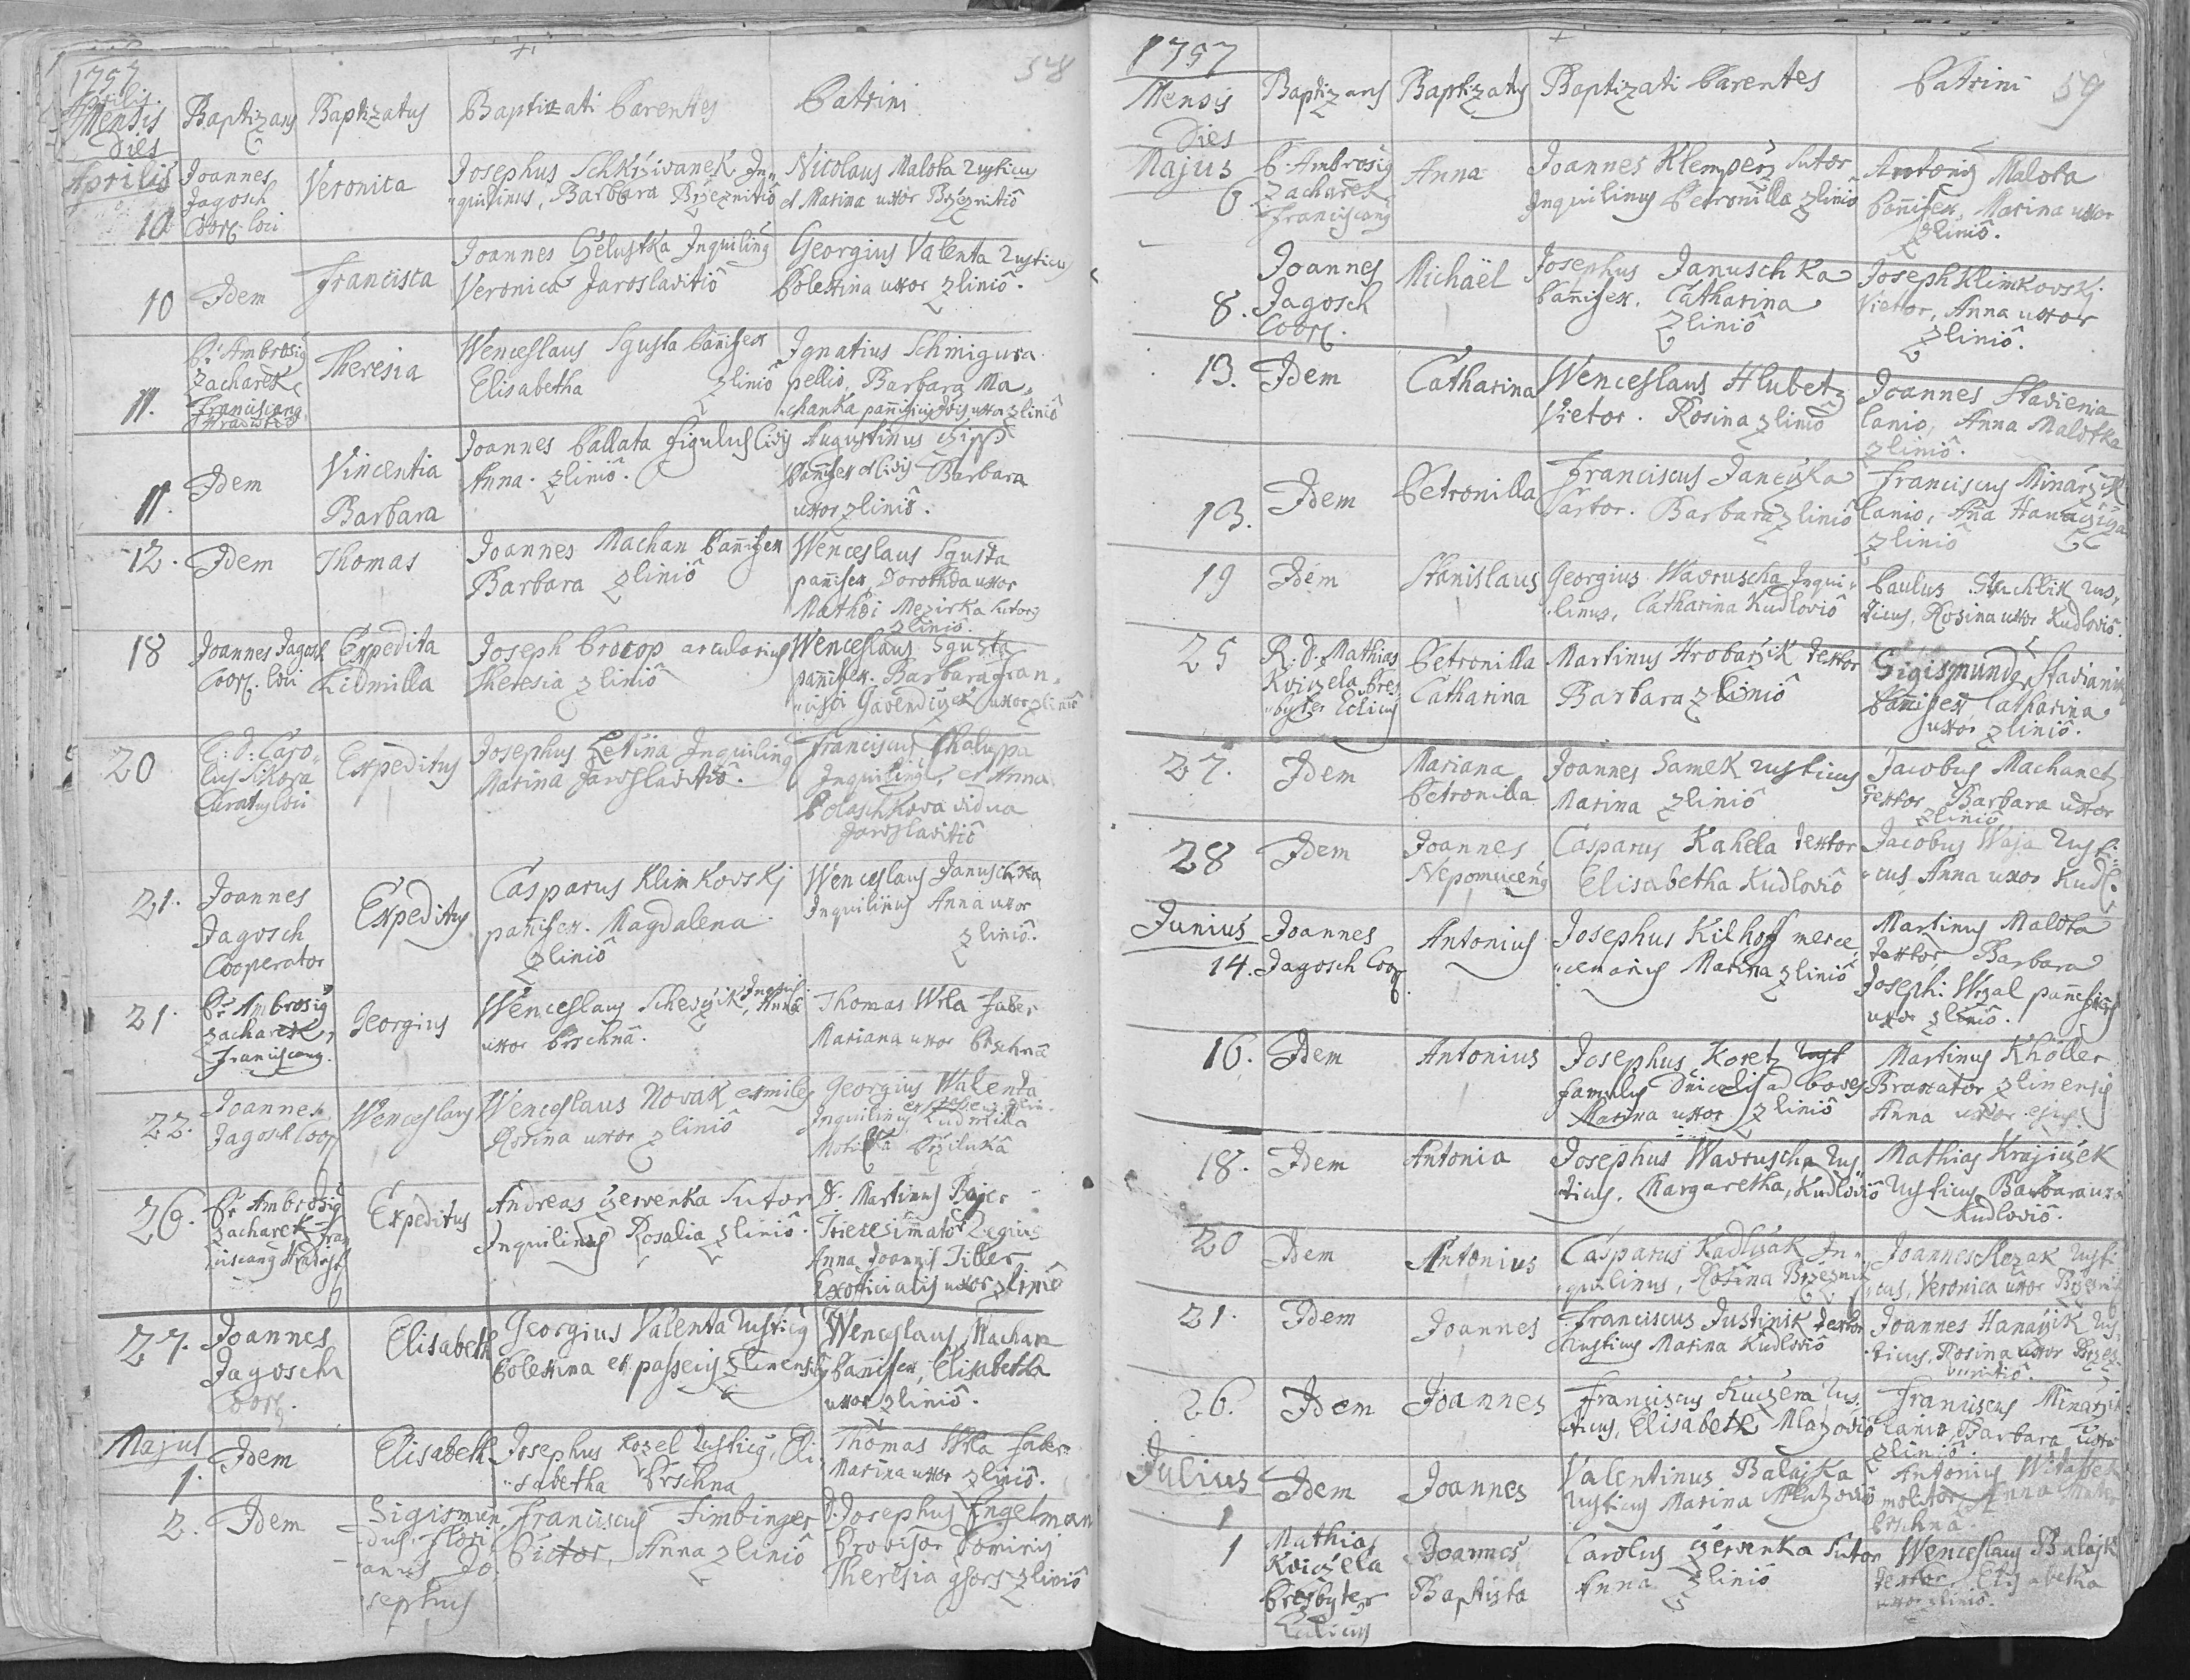 58
1757
Aprilis
Mensis
Dies
Baptizans
Baptizatus
Baptizati Parentes
Patrini
Aprilis
10
Joannes
Jagosch
Coop. loci
Veronica
Josephus Schkrziwanek In„
„quilinus, Barbara Brzeznitiô
Nicolaus Malota rusticus
et Marina uxor Brzeznitiô
10
Idem
Francisca
Joannes Gelustka Inquilinus
Veronica Jaroslavitiô
Georgius Valenta rusticus
Polexina uxor zliniô.
11.
Pr. Ambrosius
Zacharek
Franciscanus
Theresia
Wenceslaus Sgusta pannifex
Elisabetha zliniô
Ignatius Schmigura
pellio, Barbara Ma„
„chanka uxor zliniô
11.
Idem
Vincentia
Barbara
Joannes Pallata figulus Civis
Anna. zliniô.
Augustinus
Pannifex et Civis Barbara
uxor zliniô.
12.
Idem
Thomas
Joannes Machan Pannifex
Barbara zliniô
Wenceslaus Sgusta
pannifex, Dorothea uxor
Mathei Mezirka sutoris
zliniô.
18
Joannes Jagosch
Coop. loci
Expedita
Lidmilla
Joseph Procop arcularius
Theresia zliniô
Wenceslaus Sgusta
pannifex. Barbara Fran„
„cisci uxor zliniô
20
Caro„
lus Sikora
Curatus loci
Expeditus
Josephus Letina Inquilinus
Marina Jaroslavitiô.
Franciscus Chaluppa
Inquilinus, et Anna
Polaschkova vidua
Jaroslavitiô
21.
Joannes
Jagosch
Cooperator
Expeditus
Casparus Klimkovskj
panifex. Magdalena
zliniô
Wenceslaus Januschka
Inquilinus Anna uxor
zliniô.
21.
Pr. Ambrosius
Zacharek,
Franciscanus.
Georgius
Wenceslaus Schevzik, Anna
uxor Prschnâ.
Thomas Wrla Faber
Mariana uxor Prschnâ
22.
Joannes
Jagosch Coop
Wenceslaus
Wenceslaus Novak exmiles
Rosina uxor zliniô
Georgius Walenta
Inquilinus Ludmilla
Przilukâ
26.
Pr. Ambrosius
Zacharek Fran
ciscanus Hradist
Expeditus
Andreas Czervenka Sutor
Inquilinus Rosalia zliniô.
D. Martinus Bajer
Tricesimator Regius
Anna Joannis Tiller
Exofficialis uxor zliniô
27.
Joannes
Jagosch
Coop.
Elisabeth
Georgius Valenta Rusticus
Polexina ex passeciis zlinensibus
Wenceslaus Machan
Pannifex, Elisabetha
uxor zliniô.
Majus
1.
Idem
Elisabeth
Josephus Kozel Rusticus, Eli„
„sabetha Prschna
Thomas Wrla faber
Marina uxor zliniô.
2.
Idem
Sigismun„
dus, Flori
anus Jo„
sephus
Franciscus Timbinger
Pictor, Anna zliniô
D. Josephus Engelman
Provisor Dominij
Theresia zliniô
59
1757
Mensis
Dies
Baptizans
Baptizatus
Baptizati Parentes
Patrini
Majus
6
P. Ambrosius
Zacharek
Franciscanus
Anna
Joannes Klemperz sutor
Inquilinus Petronilla zliniô
Antonius Malota
Pannifex, Marina uxor
zliniô.
8.
Joannes
Jagosch
Coop.
Michaël
Josephus Januschka
Pannifex. Catharina
zliniô
Joseph Klimkovskj
Vietor, Anna uxor
zliniô.
13.
Idem
Catharina
Wenceslaus Hlubetz
Vietor. Rosina zliniô
Joannes Stavienia
lanio, Anna Malotka
zliniô.
13.
Idem
Petronilla
Franciscus Janczka
Sartor. Barbara zliniô
Franciscus Minarzik
lanio, Anna
zliniô
19
Idem
Stanislaus
Georgius Wavruscha Inqui„
„linus, Catharina Kudloviô
Paulus Stuchlik rus„
ticus, Rosina uxor Kudloviô.
25
R. D. Mathias
Kviczela Pres
„byter
Petronilla
Catharina
Martinus Hrobarzik textor
Barbara zliniô
Sigismundus
Pannifex Catharina
uxor zliniô.
27.
Idem
Mariana
Petronilla
Joannes Samek rusticus
Marina zliniô
Jacobus Machanetz
textor Barbara uxor
zliniô
28
Idem
Joannes
Nepomucenus
Casparus Kahela textor
Elisabetha Kudloviô
Jacobus Waja rusti„
„cus Anna uxor Kudl.
Junius
14.
Joannes
Jagosch Coop.
Antonius
Josephus Kilhoff merce„
„cenarius Marina zliniô
Martinus Malota
textor, Barbara
Josephi Wrzal panificis
uxor zliniô.
16.
Idem
Antonius
Josephus Koretz
famulus ad boves
Marina uxor zliniô
Martinus Khöller
Braxator zlinensis
Anna uxor ejus
18.
Idem
Antonia
Josephus Wavruscha Rus„
ticus. Margaretha, Kudloviô
Mathias Krajiczek
rusticus Barbara uxor
Kudloviô.
20
Idem
Antonius
Casparus Kadlczak In„
„quilinus, Rosina Brzeznit
Joannes Slezak rusti
cus, Veronica uxor Brzeznit
21.
Idem
Joannes
Franciscus Justinik textor
Rusticus Marina Kudloviô
Joannes Hanaczik rus
ticus, Rosina uxor Brzez„
nitiô.
26.
Idem
Joannes
Franciscus Kuczera rus„
ticus, Elisabeth Mlazoviô
Franciscus Minarzik
lanio, Barbara uxor
zliniô.
Julius
1
Idem
Joannes
Valentinus Balajka
rusticus Marina
Antonius Witassek
molitor, Anna
Prschnâ.
1
Mathias
Kviczella
Presbyter
Joannes
Baptista
Carolus Czervenka Sutor
Anna zliniô
Wenceslaus Balajk
textor, Elisabetha
uxor zliniô.